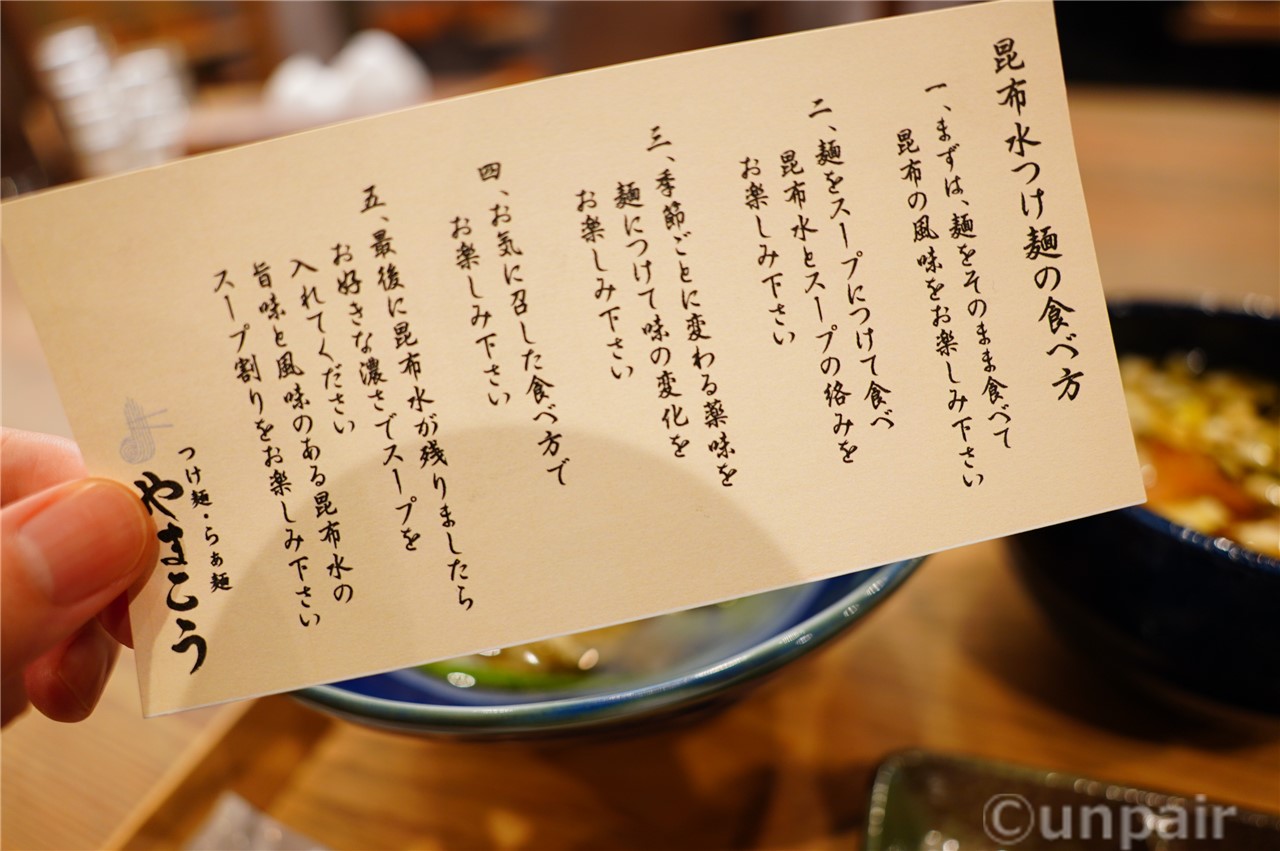 昆布水つけ麺の食べ方
一、まずは、麺をそのまま食べて
昆布の風味をお楽しみ下さい
二、麺をスープにつけて食べ
昆布水とスープの絡みを
お楽しみ下さい
三、季節ごとに変わる薬味を
麺につけて味の変化を
お楽しみ下さい
四、お気に召した食べ方で
お楽しみ下さい
五、最後に昆布水が残りましたら
お好きな濃さでスープを
入れてください
旨味と風味のある昆布水の
スープ割りをお楽しみ下さい
つけ麺・らぁ麺
やまこう
©unpair